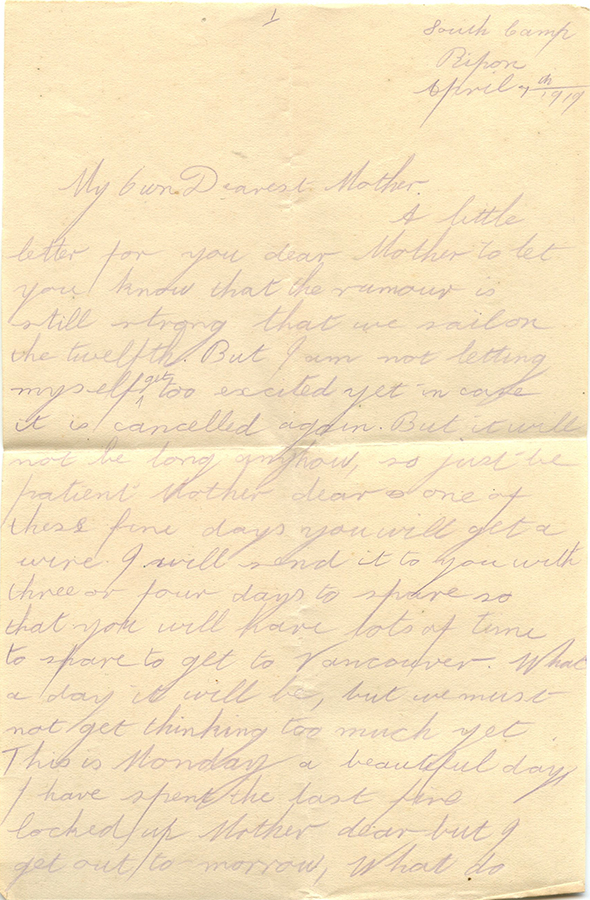 1
South Camp
Ripon
April 7th 1919
My Own Dearest Mother.
A little
letter for you dear Mother to let
you know that the rumour is
still strong that we sail on
the twelfth. But I am not letting
myself get too excited yet in case
it is cancelled again. But it will
not be long anyhow, so just be
patient Mother dear & one of
these fine days you will get a
wire. I will send it to you with
three or four days to spare so
that you will have lots of time
to spare to get to Vancouver. What
a day it will be, but we must
not get thinking too much yet.
This is Monday a beautiful day
I have spent the last five
locked up Mother dear but I
get out to morrow, What do